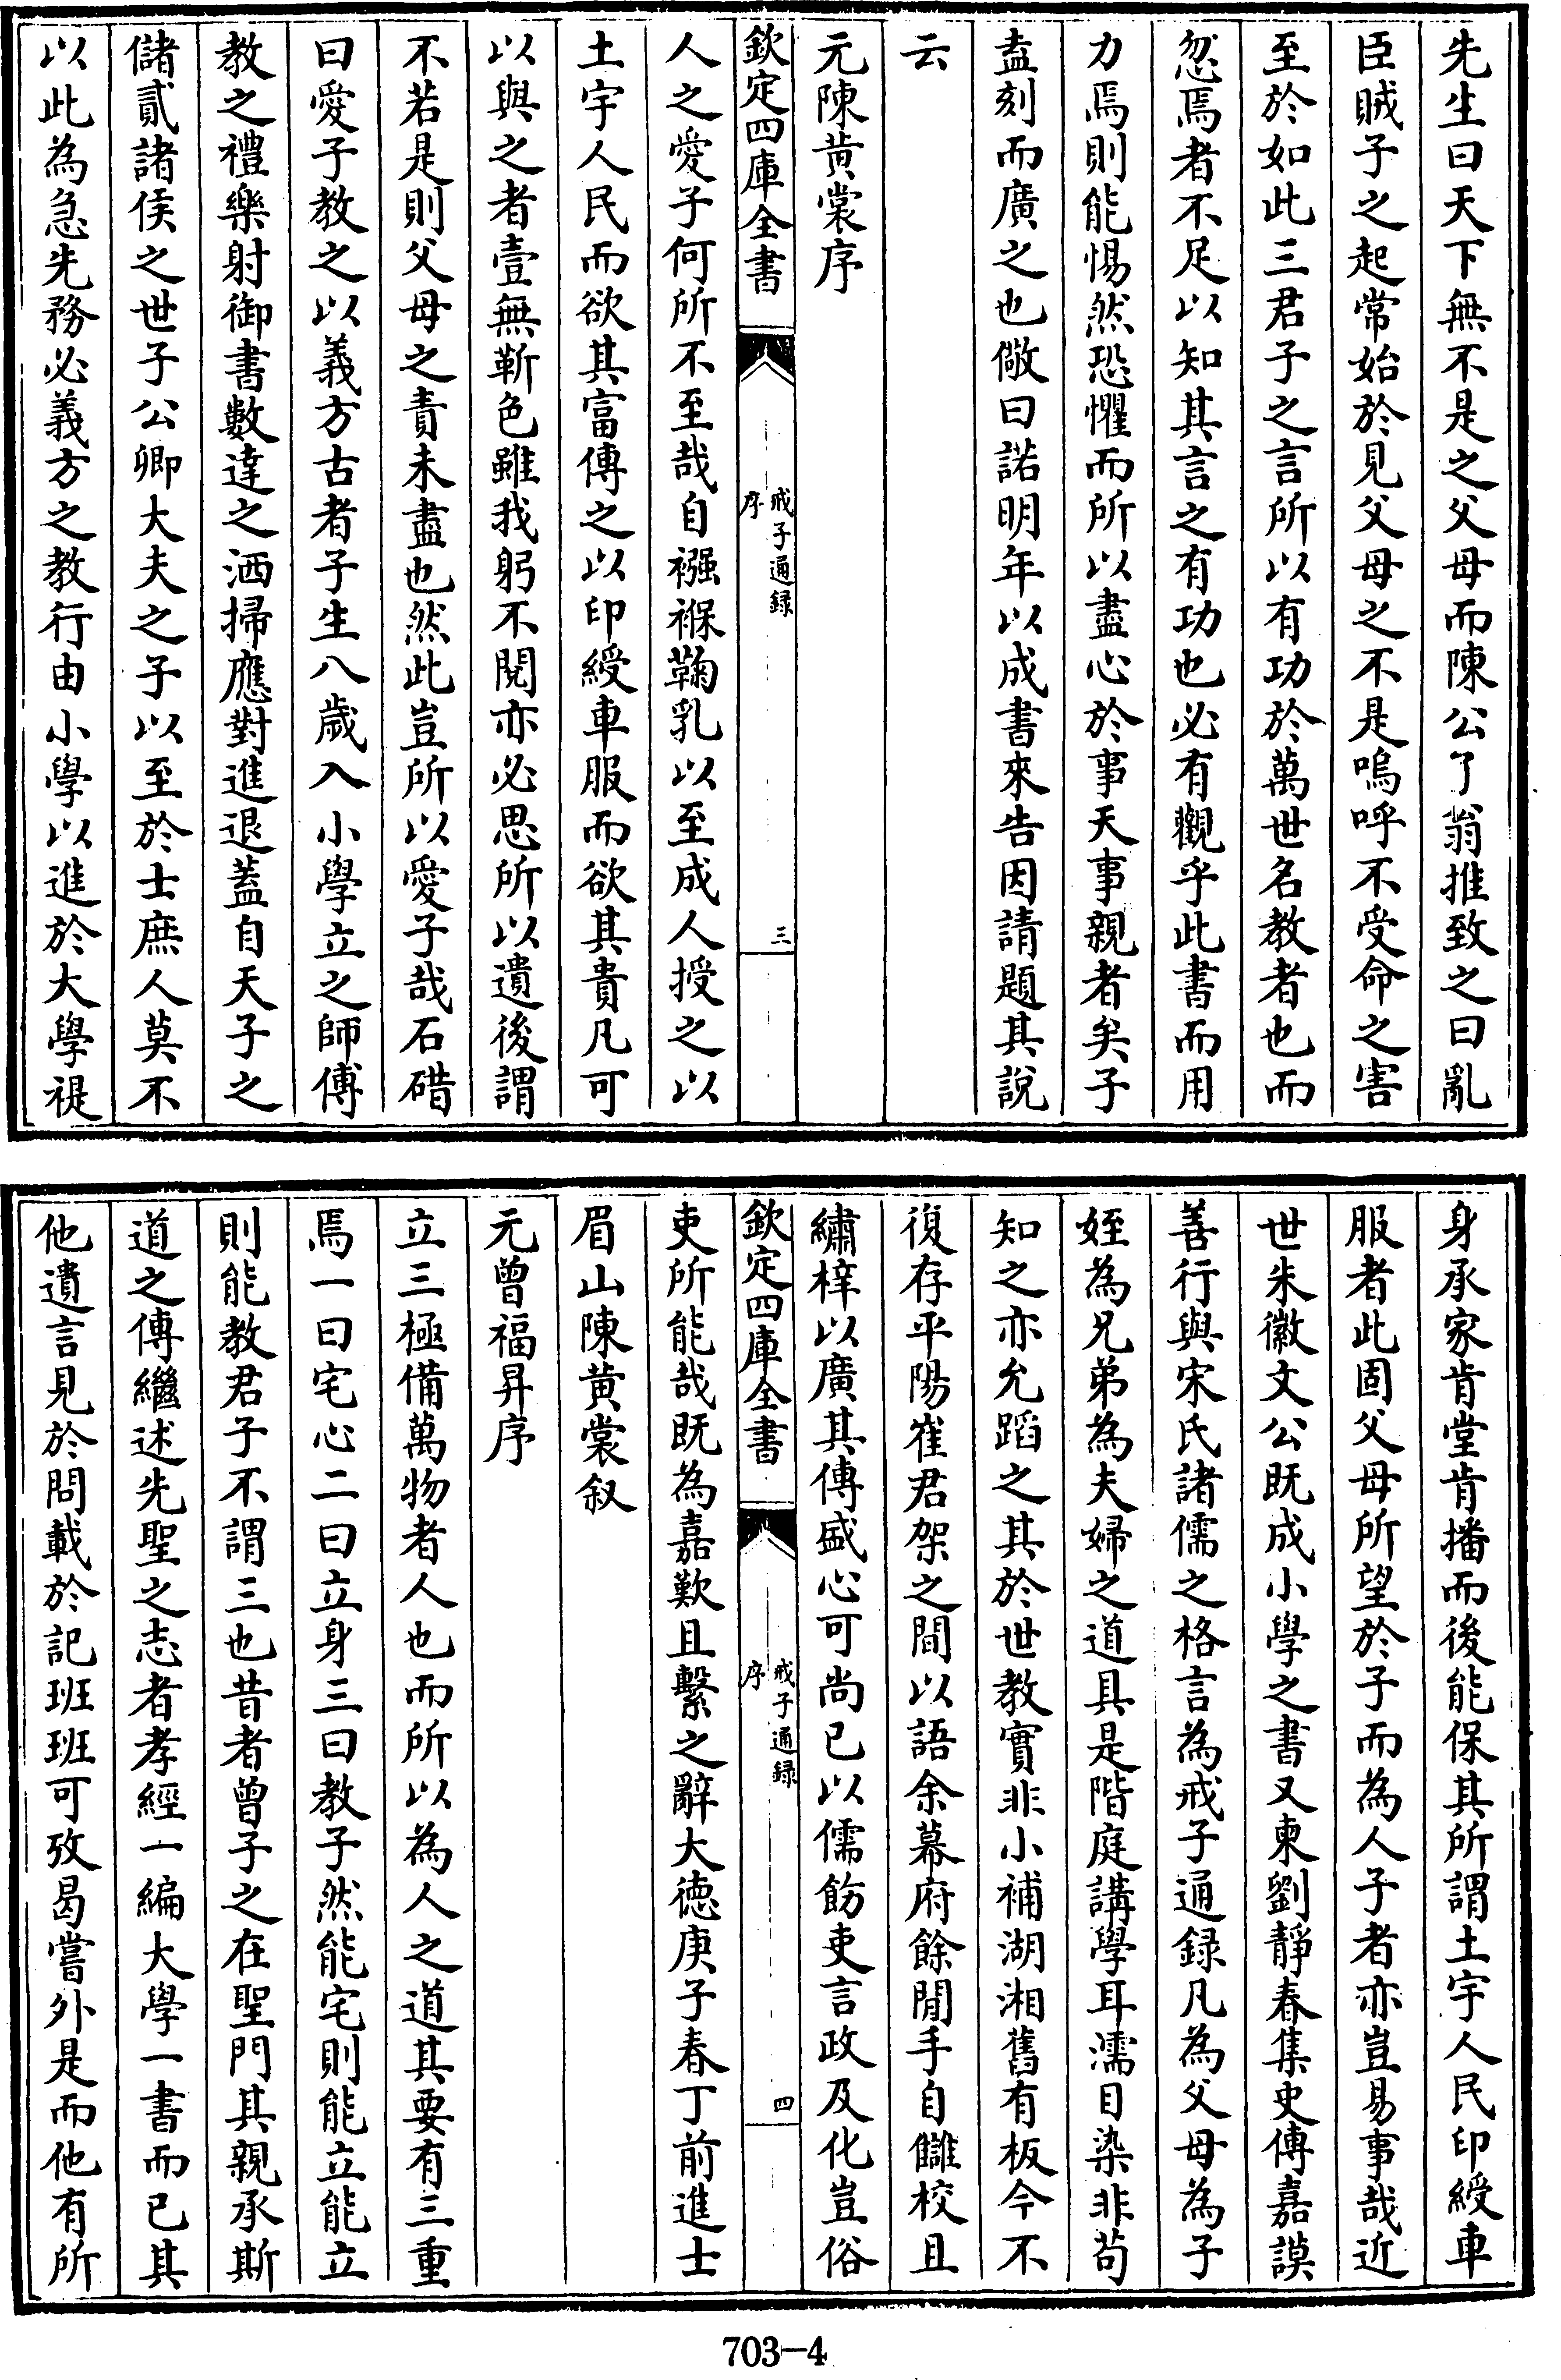 先生曰天下無不是之父母而陳公了翁推致之曰亂
臣賊子之起常始於見父母之不是嗚呼不受命之害
至於如此三君子之言所以有功於萬世名教者也而
忽焉者不足以知其言之有功也必有觀乎此書而用
力焉則能惕然恐懼而所以盡心於事天事親者矣子
盍刻而廣之也儆曰諾明年以成書來告因請題其說
云
元陳黄裳序
欽定四庫全書
戒子通録
序
三
人之愛子何所不至哉自襁褓鞠乳以至成人授之以
土宇人民而欲其富傳之以印綬車服而欲其貴凡可
以與之者壹無靳色雖我躬不閱亦必思所以遺後謂
不若是則父母之責未盡也然此豈所以愛子哉石碏
曰愛子教之以義方古者子生八歲入小學立之師傅
教之禮樂射御書數達之洒掃應對進退蓋自天子之
儲貳諸侯之世子公卿大夫之子以至於士庶人莫不
以此為急先務必義方之教行由小學以進於大學禔
身承家肯堂肯播而後能保其所謂土宇人民印綬車
服者此固父母所望於子而為人子者亦豈易事哉近
世朱徽文公既成小學之書又柬劉靜春集史傳嘉謨
善行與宋氏諸儒之格言為戒子通録凡為父母為子
姪為兄弟為夫婦之道具是階庭講學耳濡目染非苟
知之亦允蹈之其於世教實非小補湖湘舊有板今不
復存平陽崔君架之間以語余幕府餘閒手自讎校且
繡梓以廣其傳盛心可尚已以儒飭吏言政及化豈俗
欽定四庫全書
戒子通録
序
四
吏所能哉既為嘉歎且繫之辭大徳庚子春丁前進士
眉山陳黄裳叙
元曾福昇序
立三極備萬物者人也而所以為人之道其要有三重
焉一曰宅心二曰立身三曰教子然能宅則能立能立
則能教君子不謂三也昔者曾子之在聖門其親承斯
道之傳繼述先聖之志者孝經一編大學一書而已其
他遺言見於問載於記班班可攷曷嘗外是而他有所
703-4